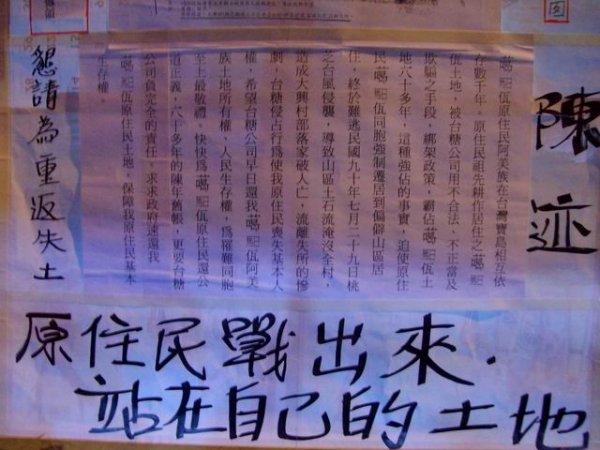 陳迹
佤原住民阿美族在台灣寶島相互依
存數千年。原住民祖先耕作居住之
佤土地，被台糖公司用不合法、不正當及
欺騙之手段，綁架政策，霸佔佤土
地八十多年，這種強佔的事實，迫使原住
民佤同胞強制遷居到偏僻山區居
住，終於難逃民國九十年七月二十九日桃
之台風侵襲，導致山區土石流淹沒全村，
造成大興村部落家破人亡，流離失所的慘
劇，台糖侵占行為使我原住民喪失基本人
權，希望台糖公司早日還我佤阿美
族土地所有權，人民生存權，為罹難同胞
至上最敬禮。快快為佤原住民還公
道正義，八十多年的陳年舊帳，更要台糖
公司負完全的責任，求求政府速還我
佤原住民土地，保障我原住民基本
生存權。
懇請為重返失土
原住民戰出來．
站在自己的土地